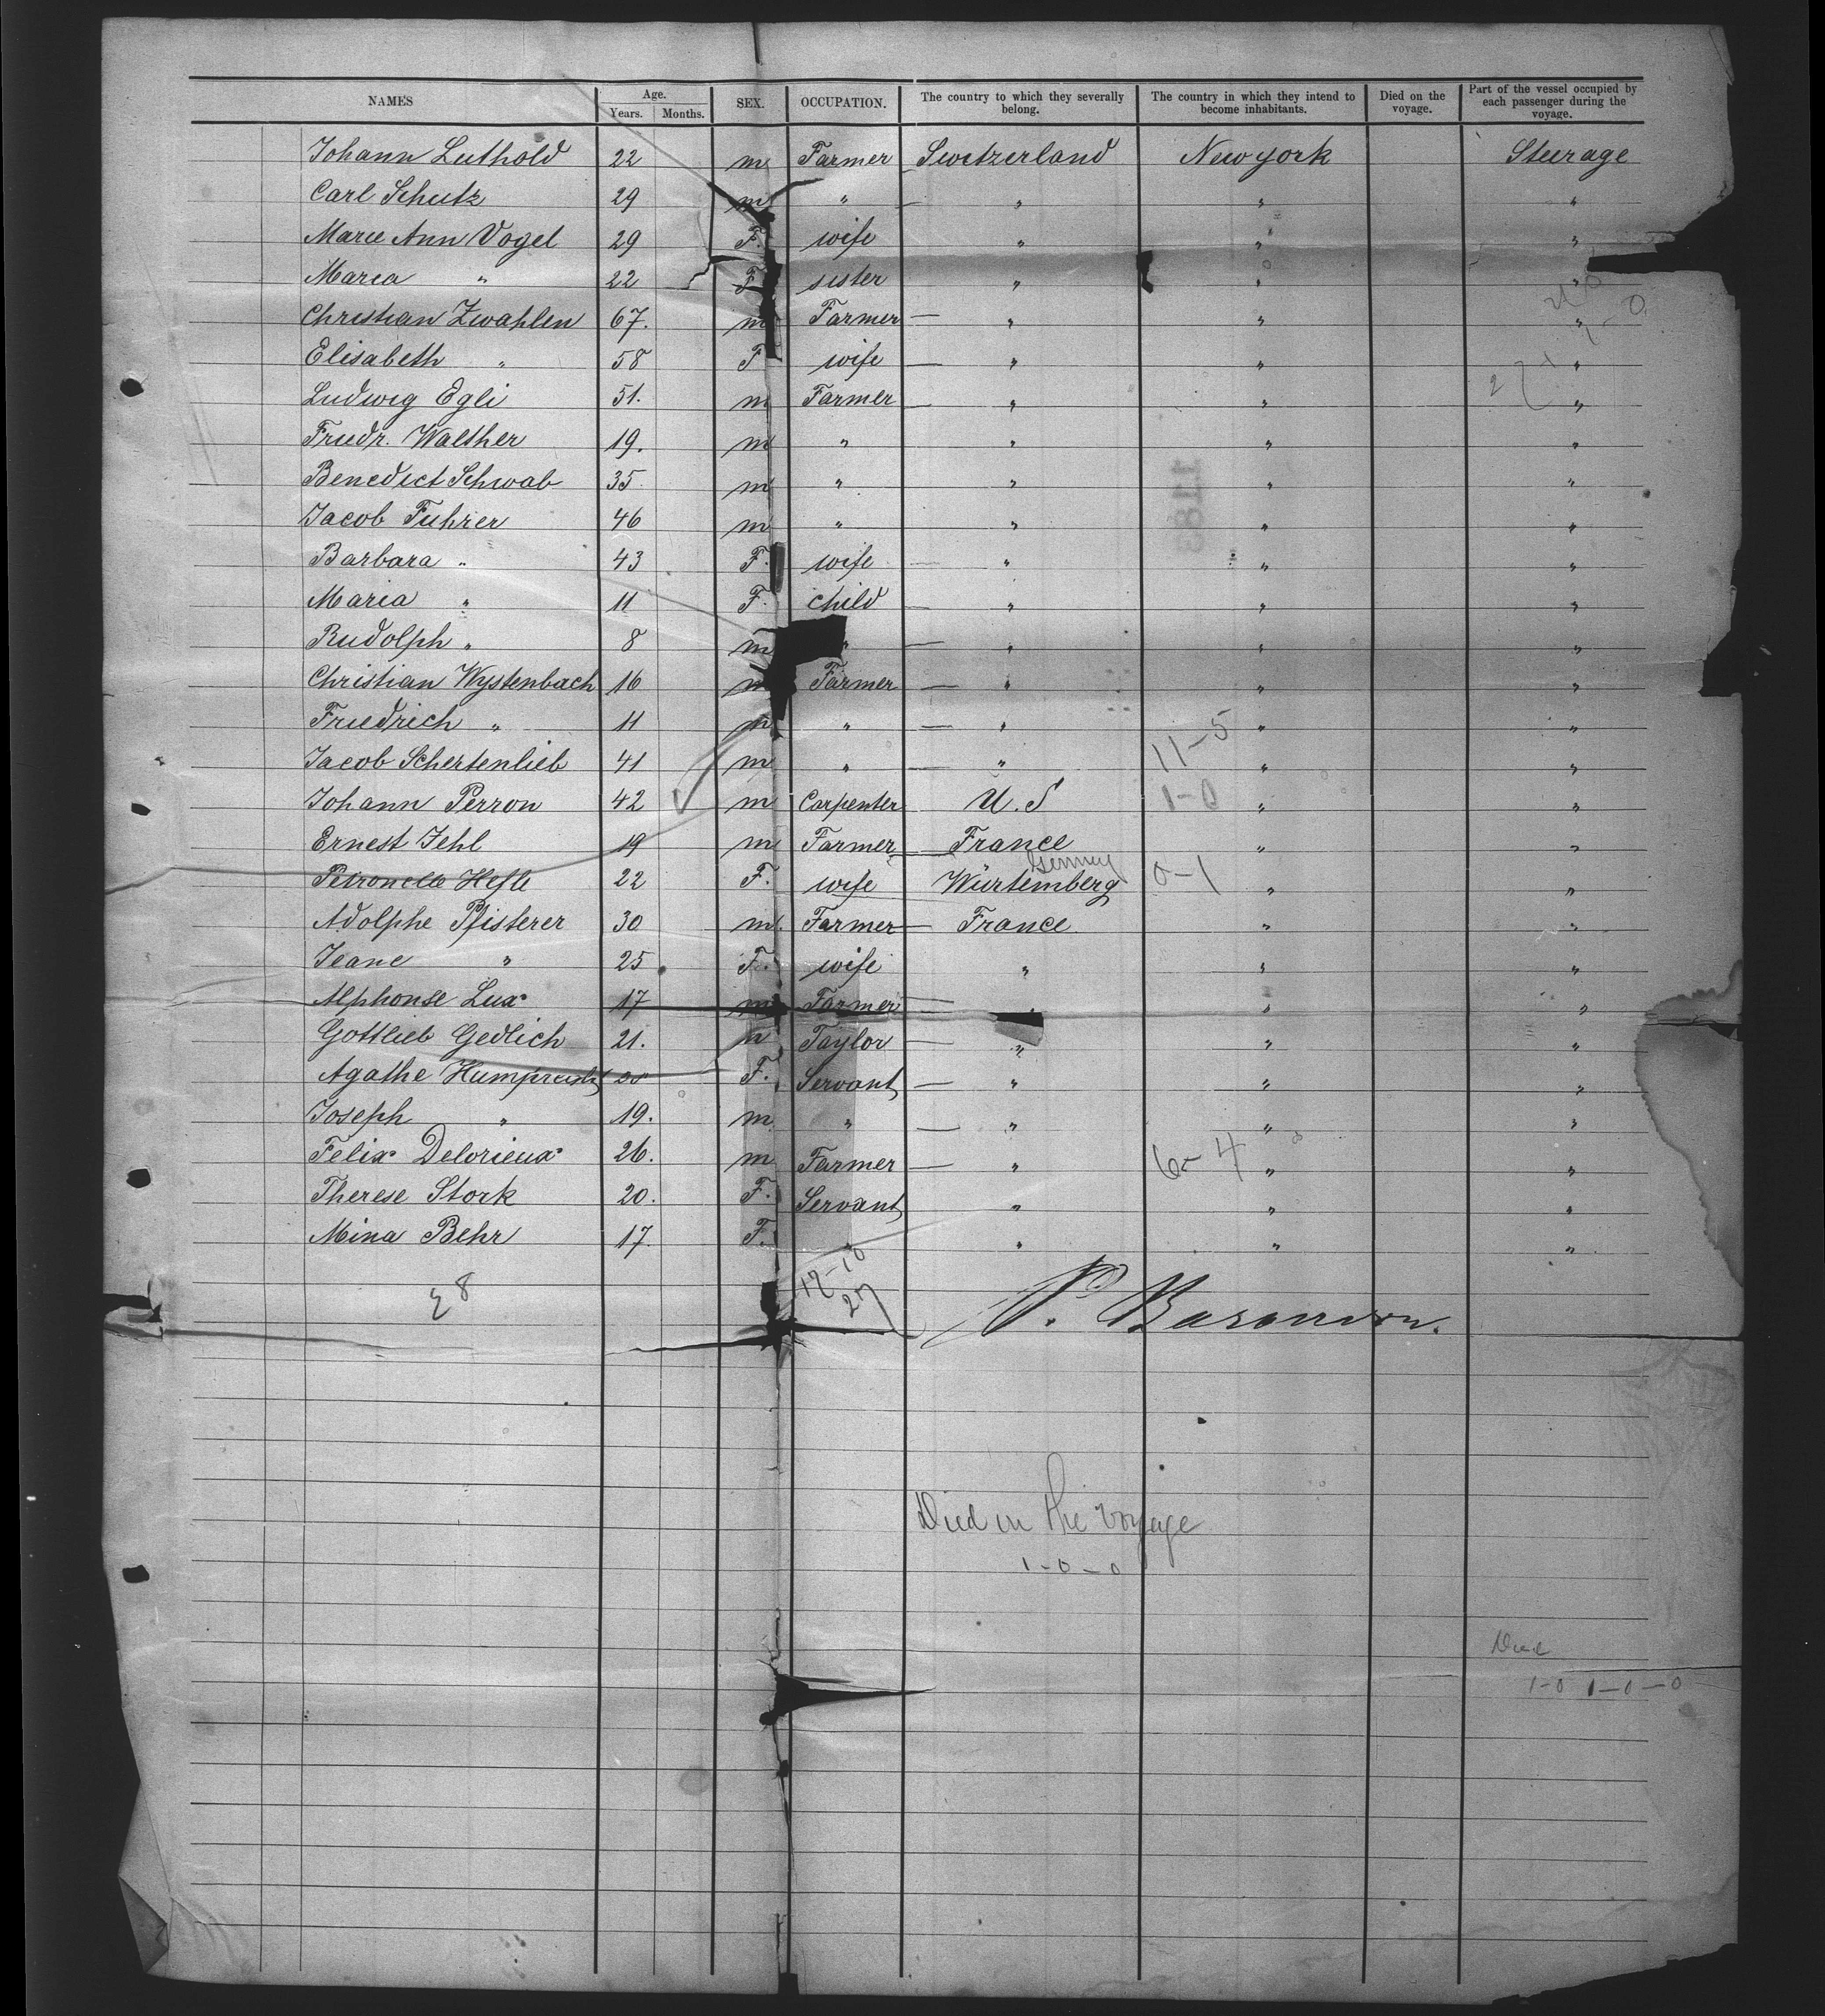 NAMES Age. Years. Months. SEX. OCCUPATION. The country to which they severally belong. The country in which they intend to become inhabitants. Died on the voyage. Part of the vessel occupied by each passenger during the voyage.
Johann Luthold 22 m Farmer Switzerland New york Steerage
Carl Schutz 29 m " " " "
Marie Ann Vogel 29 F. wife " " "
Maria " 22 F sister " " "
Christian Zwahlen 67. m Farmer " " "
Elisabeth " 58 F wife " " "
Ludwig Egli 51. m Farmer " " "
Friedr. Walther 19. m " " " "
Benedict Schwab 35. m " " " "
Jacob Fuhrer 46 m " " " "
Barbara " 43 F. wife " " "
Maria " 11 F. child " " "
Rudolph " 8 m " " " "
Christian Wystenbach 16 m Farmer " " "
Friedrich " 11 m " " " "
11-5
Jacob Schertenlieb 41 m " " " "
Johann Perron 42 m Carpenter U.S 1-0 " "
Ernest Jehl 19 m Farmer France " "
Petronelle Hefle 22 F. wife Würtemberg 0-1 " "
Adolphe Pfisterer 30 m. Farmer France " "
Jeane " 25 F. wife " " "
Alphonse Lux 17 m Farmer " " "
Gottlieb Gedlich 21. m Taylor " " "
Agathe F. Servant " " "
Joseph " 19. m " " " "
Felix Delorieux 26. m Farmer " 6-4 " "
Therese Stork 20. F. Servant " " "
Mina Behr 17. F. " " " "
28 17-10
27
P. Barondon.
Died on the voyage
1-0-0
Died
1-0 1-0-0